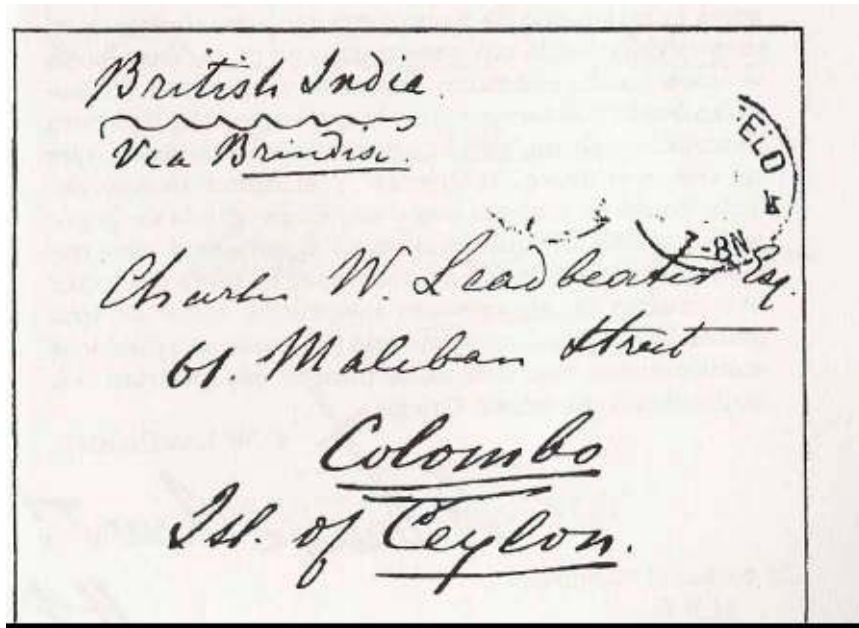 British India.
Via Brindisi
ELD
7-BN
Charles W. Leadbeater Esq.
61. Maleban Street
Colombo
Isl. of Ceylon.